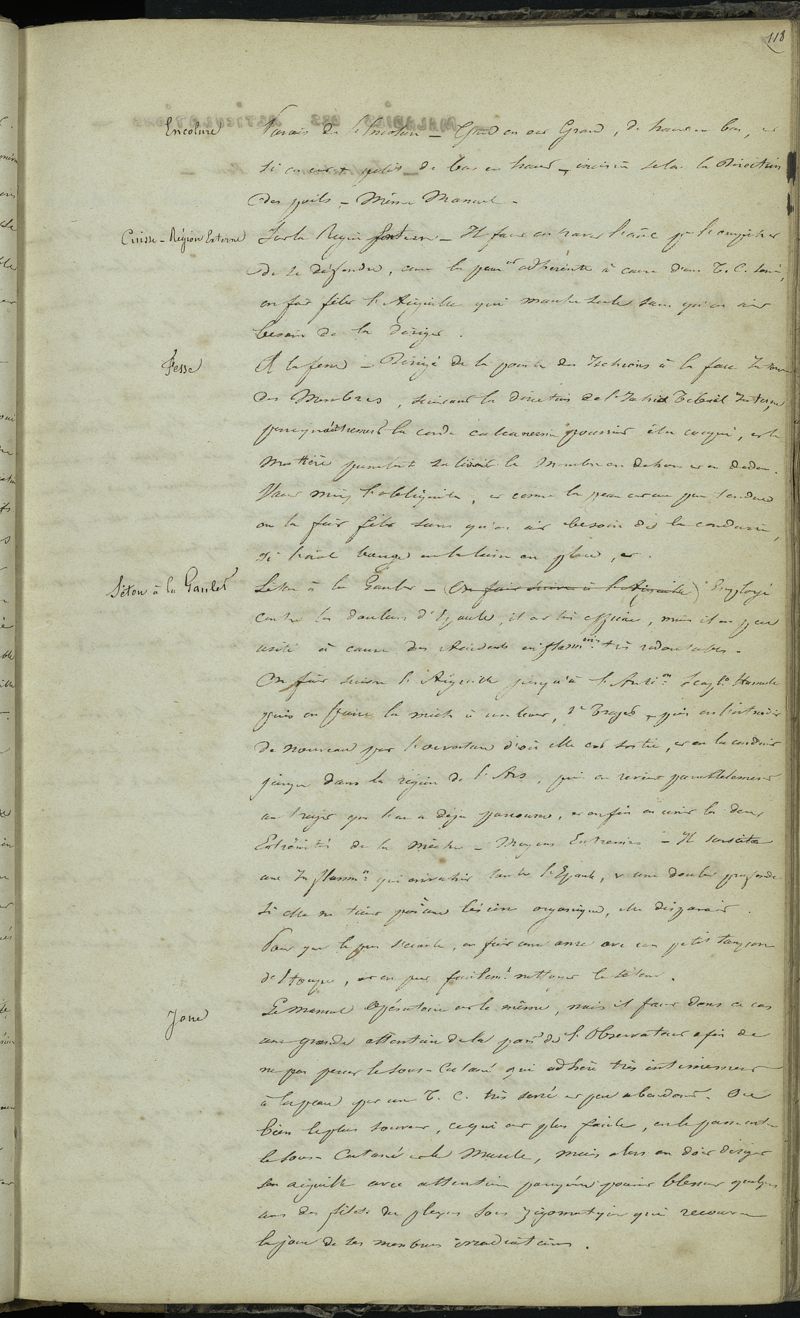 118
Encolure Parois de l'Encolure – Quand on est Grand, de haut en bas, et
si on est petit de bas en haut – incision selon la Direction
des poils – Même Manuel –
Cuisse – Région Externe Sur la Région – Il faut entraver l'animal pr l'empêcher
de se défendre, comme la peau est adhérente à cause d'un T. C. serré,
on fait filer l'Aiguille qui marche seule sans qu'on ait
besoin de la diriger.
Fesse A la fesse – Dirigé de la pointe des Ischions à la face Interne
des Membres, suivant la direction de l'Ischio Tibial Interne,
parcequ'autrement la corde calcanéenne pourrait être coupée, et la
Matière purulente salirait le Membre en dehors et en dedans.
l'obliquité, et comme la peau est un peu tendue
on la fait filer sans qu'on ait besoin de la conduire,
si
Séton à la Gaulet Séton à la Gaulet – (On fait suivre à l'Aiguille) Employé
contre les douleurs d'Epaule, il est très efficace, mais il est peu
usité à cause des Accidents inflammres très redoutables.
On fait suivre l'Aiguille jusqu'à l'Artion Scaplo Humérale
puis on la mèche à un trajet puis on l'introduit
de nouveau par l'ouverture d'où elle est sortie, et on la conduit
jusque dans la région de l'Ars, puis on revient parallèlement
au trajet que l'on a déjà parcouru, et enfin on unit les deux
Extrémités de la mèche – Moyens Extrêmes – Il suscite
une Inflammon qui envahit toute l'Epaule, et une douleur profonde
si elle ne tient pas à une lésion organique, elle disparait.
Pour que le pus s'écoule, on fait une anse avec un petit tampon
d'étoupe, et on peut facilemt nettoyer le séton.
Joue Le Manuel Opératoire est le même, mais il faut dans ce cas
une grande attention de la part de l'Observateur afin de
ne pas percer le sous-Cutané qui adhère très intimement
à la peau par un T. C. très serré et peu abondant. Ou
bien le plus souvent, ce qui est plus facile, on le passe entre
le sous-Cutané et le Muscle, mais alors on doit diriger
son aiguille avec attention parcequ'on pourrait blesser quelques
uns des filets du plexus sous zygomatique qui recouvre
la joue de ses nombreuses irradiations.